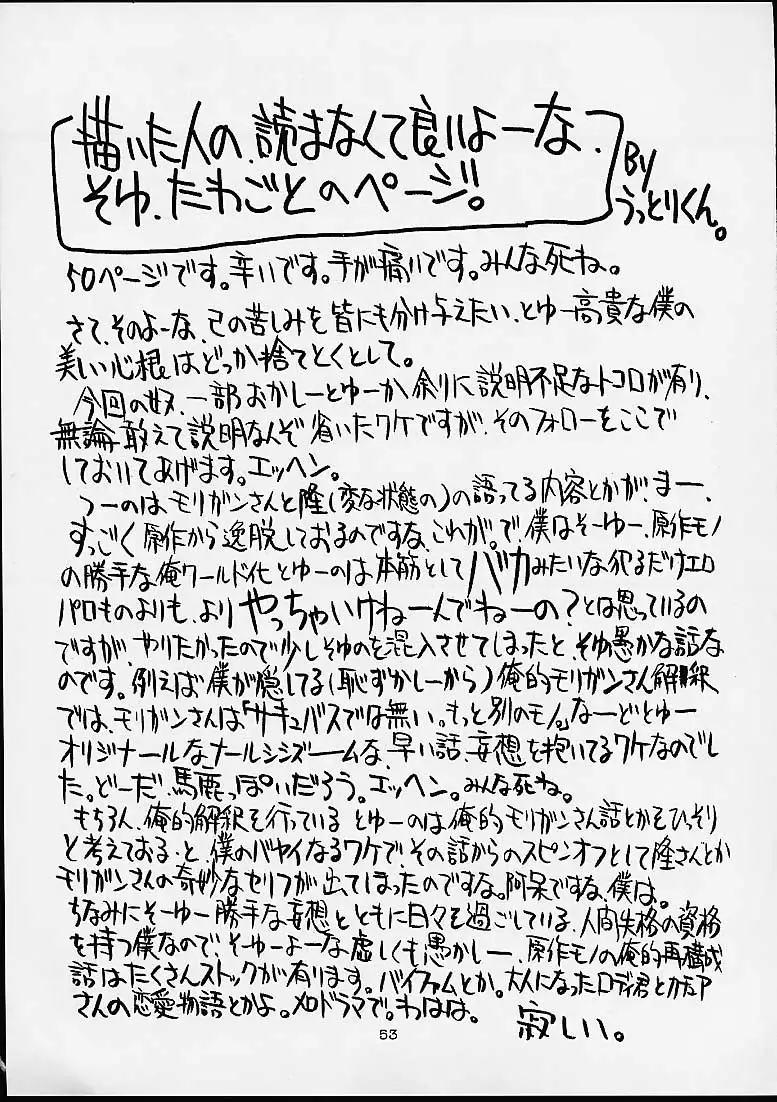 描いた人の、読まなくて良いよーな、
そゆ、たわごとのページ。
By
うっとりくん。
50ページです。辛いです。手が痛いです。みんな死ね。
さて、そのよーな、己の苦しみを皆にも分け与えたい、とゆー高貴な僕の
美しい心根はどっか捨てとくとして。
今回の奴、一部おかしーとゆーか、余りに説明不足なトコロが有り、
無論敢えて説明なんぞ省いたワケですが、そのフォローをここで
しておいてあげます。エッヘン。
つーのは、モリガンさんと隆(変な状態の)の語ってる内容とかが、まー、
すっごく原作から逸脱しておるのですな、これが。で、僕はそーゆー、原作モノ
の勝手な俺ワールド化とゆーのは本筋としてバカみたいな犯るだけエロ
パロものよりも、よりやっちゃいけねーんでねーの?とは思っているの
ですが、やりたかったので少しそゆのを混入させてしまったと、そゆ愚かな話な
のです。例えば僕が隠してる(恥ずかしーから)俺的モリガンさん解釈
では、モリガンさんは「サキュバスでは無い。もっと別のモノ。」なーどとゆー
オリジナールなナールシシズームな、早い話、妄想を抱いてるワケなのでし
た。どーだ、馬鹿っぽいだろう。エッヘン。みんな死ね。
もちろん、俺的解釈を行っているとゆーのは俺的モリガンさん話とかそひっそり
と考えておると、僕のバヤイなるワケで、その話からのスピンオフとして隆さんとか
モリガンさんの奇妙なセリフが出てしまったのですな。阿呆ですな、僕は。
ちなみにそーゆー勝手な妄想とともに日々を過ごしている、人間失格の資格
を持つ僕なので、そーゆーよーな虚しくも愚かしー、原作モノの俺的再構成
話はたくさんストックが有ります。バイファムとか。大人になったロディ君とカチュア
さんの恋愛物語とかよ。メロドラマで。わはは。
寂しい。
53